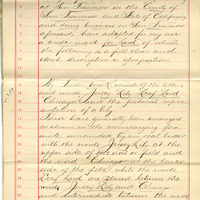 at San Francisco in the County of
San Francisco and State of California
and doing business in San Francisco
aforesaid, have adopted for my use
a trade-mark for Lard of which
the following is a full clear and
exact description or specification.
My Trade Mark consists of the letters
and words Jersey Lily Leaf Lard
Chicago, and the pictorial represen
tation of a lily
These have generally been arranged
as shown in the accompanying fac
simile surrounded by an border
with the words Jersey Lily at the
upper side of the border or field and
the word Chicago at the lower
side of the field, while the words
Leaf Lard are placed between the
words Jersey Lily and Chicago
and intermediate between the words